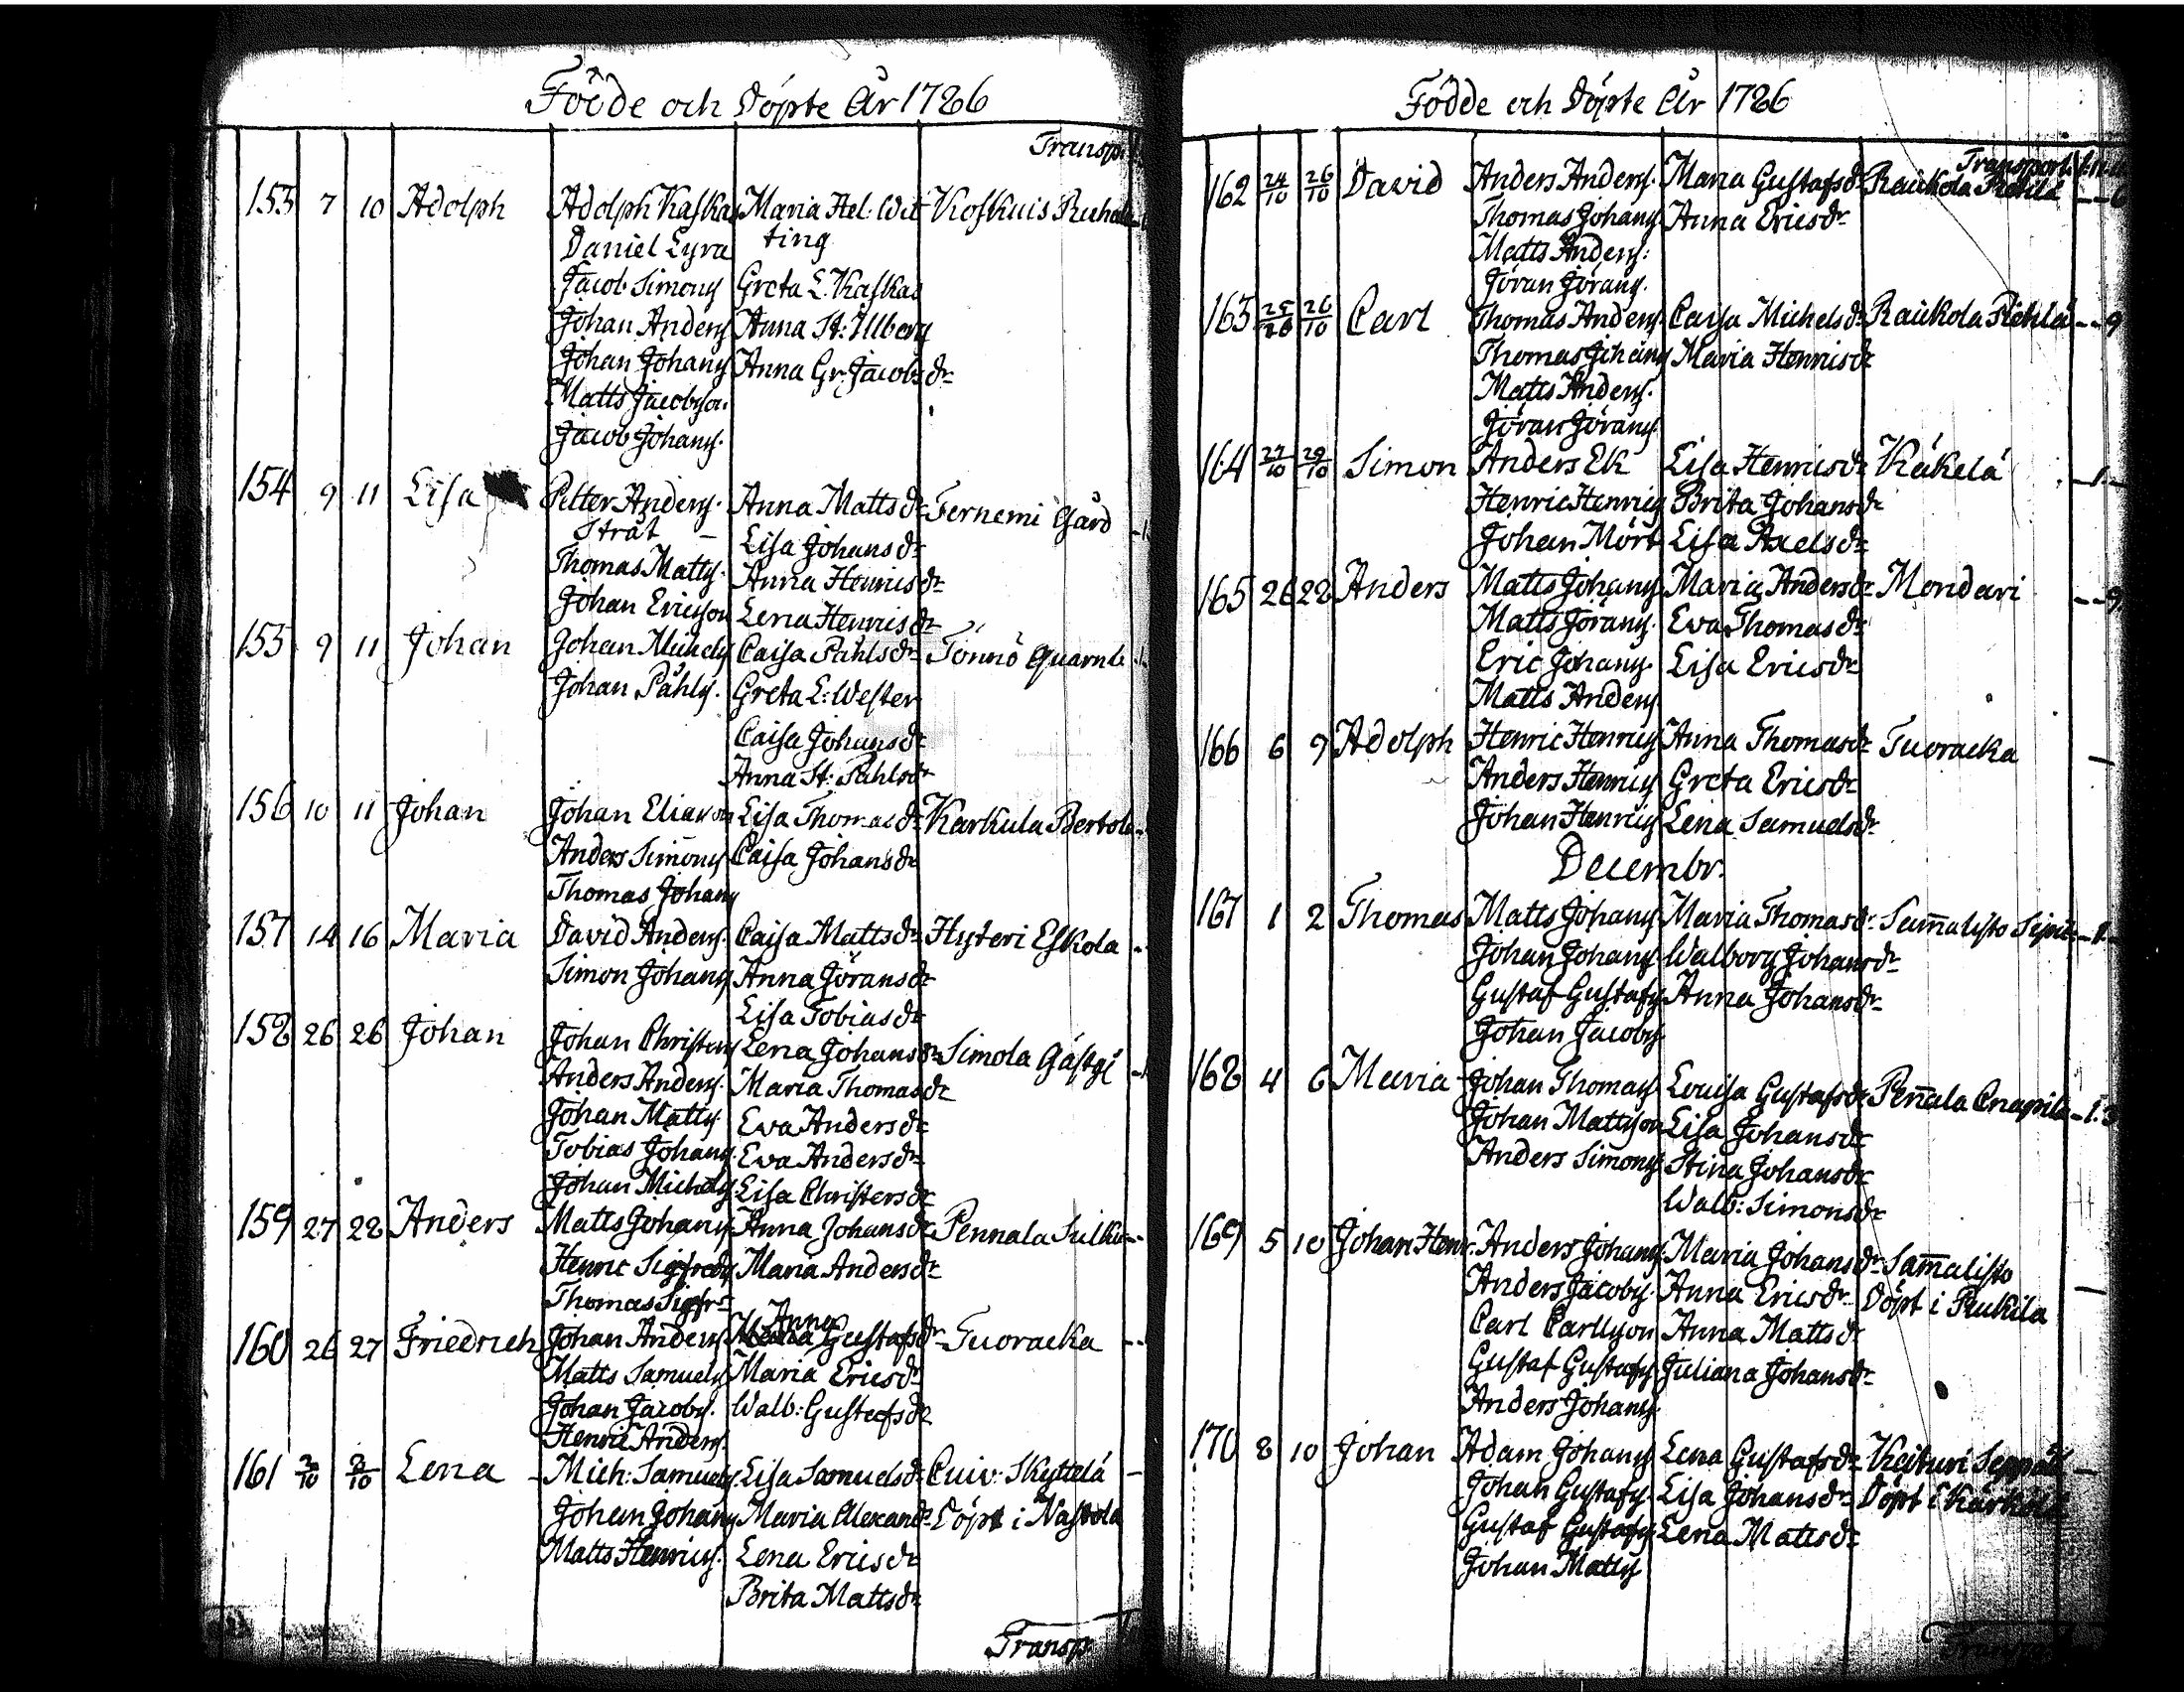 Födde och Döpte År 1786
Transp.
153 7 10 Adolph Adolph Kaskas Maria Hel: Wit Koskuis Ruhala
Daniel Lyra ting
Jacob Simons Greta L. Kaskas
Johan Anders Anna St: Ulberg
Johan Johans Anna Gr. Jacobs dr
Matts Jacobson
Jacob Johans.
154 9 11 Lisa Petter Anders. Anna Matts dr Fernemi Gård
Stråt Lisa Johans dr
Thomas Matts. Anna Henrics dr
Johan Ericson Lena Henrics dr
155 9 11 Johan Johan Michels Caisa Påhls dr Tönnö Quarnb
Johan Påhls. Greta L: Wester
Caisa Johans dr
Anna St: Påhls dr
156 10 11 Johan Johan Eliason Lisa Thomas dr Karkula Bertol
Anders Simons Caisa Johans dr
Thomas Johans
157 14 16 Maria David Anders. Caisa Matts dr Hyteri Eskola
Simon Johans Anna Jörans dr
Lisa Tobias dr
158 26 26 Johan Johan Christers Lena Johans dr Simola Gästg
Anders Anders. Maria Thomas dr
Johan Matts Eva Anders dr
Tobias Johans. Eva Anders dr
Johan Michels Lisa Christers dr
159 27 28 Anders Matts Johans Anna Johans dr Pennala Sulku
Henric Sigfreds Maria Anders dr
Thomas Sigfr
Anna
160 26 27 Friedrich Johan Anders Maria Gustafs dr Tuoracka
Matts Samuels Maria Erics dr
Johan Jacobs. Walb: Gustafs dr
Henric Anders.
161 2/10 8/10 Lena Mich: Samuels. Lisa Samuels dr Cuiv: Skyttelä
Johan Johans Maria Alexand Döpt i Nastola
Matts Henrics. Lena Erics dr
Brita Matts dr
Transp.
Födde och Döpte År 1786
Transport
162 24/10 26/10 David Anders Anders. Maria Gustafs dr Raukola Pietilä 6
Thomas Johans. Anna Erics dr
Matts Anders:
Jöran Jörans.
163 25/10 26/10 Carl Thomas Anders. Caisa Michels dr Raukola Pietilä 9
Thomas Johans Maria Henrics dr
Matts Anders.
Jöran Jörans.
164 27/10 29/10 Simon Anders Ek Lisa Henrics dr Käkelä 1.
Henric Henrics Brita Johans dr
Johan Mört Lisa Axels dr
165 26 28 Anders Matts Johans. Maria Anders dr Mondari 9
Matts Jörans. Eva Thomas dr
Eric Johans. Lisa Erics dr
Matts Anders
166 6 9 Adolph Henric Henrics Anna Thomas dr Tuoracka
Anders Henrics Greta Erics dr
Johan Henrics Lena Samuels dr
Decembr.
167 1 2 Thomas Matts Johans Maria Thomas dr. Sam̄alisto 1.
Johan Johans. Walborg Johans dr
Gustaf Gustafs Anna Johans dr
Johan Jacobs
168 4 6 Maria Johan Thomas Lovisa Gustafs dr Pen̄ala Cnapila 1.3
Johan Mattson Lisa Johans dr
Anders Simons. Stina Johans dr
Walb: Simons dr
169 5 10 Johan Henr. Anders Johans. Maria Johans dr Sam̄alisto
Anders Jacobs. Anna Erics dr Döpt i Pukila
Carl Carlsson Anna Matts dr
Gustaf Gustafs Juliana Johans dr
Anders Johans
170 8 10 Johan Adam Johans Lena Gustafs dr Keituri Seppälä
Johan Gustafs. Lisa Johans dr Döpt i Kärkölä
Gustaf Gustafs Lena Matts dr
Johan Matts